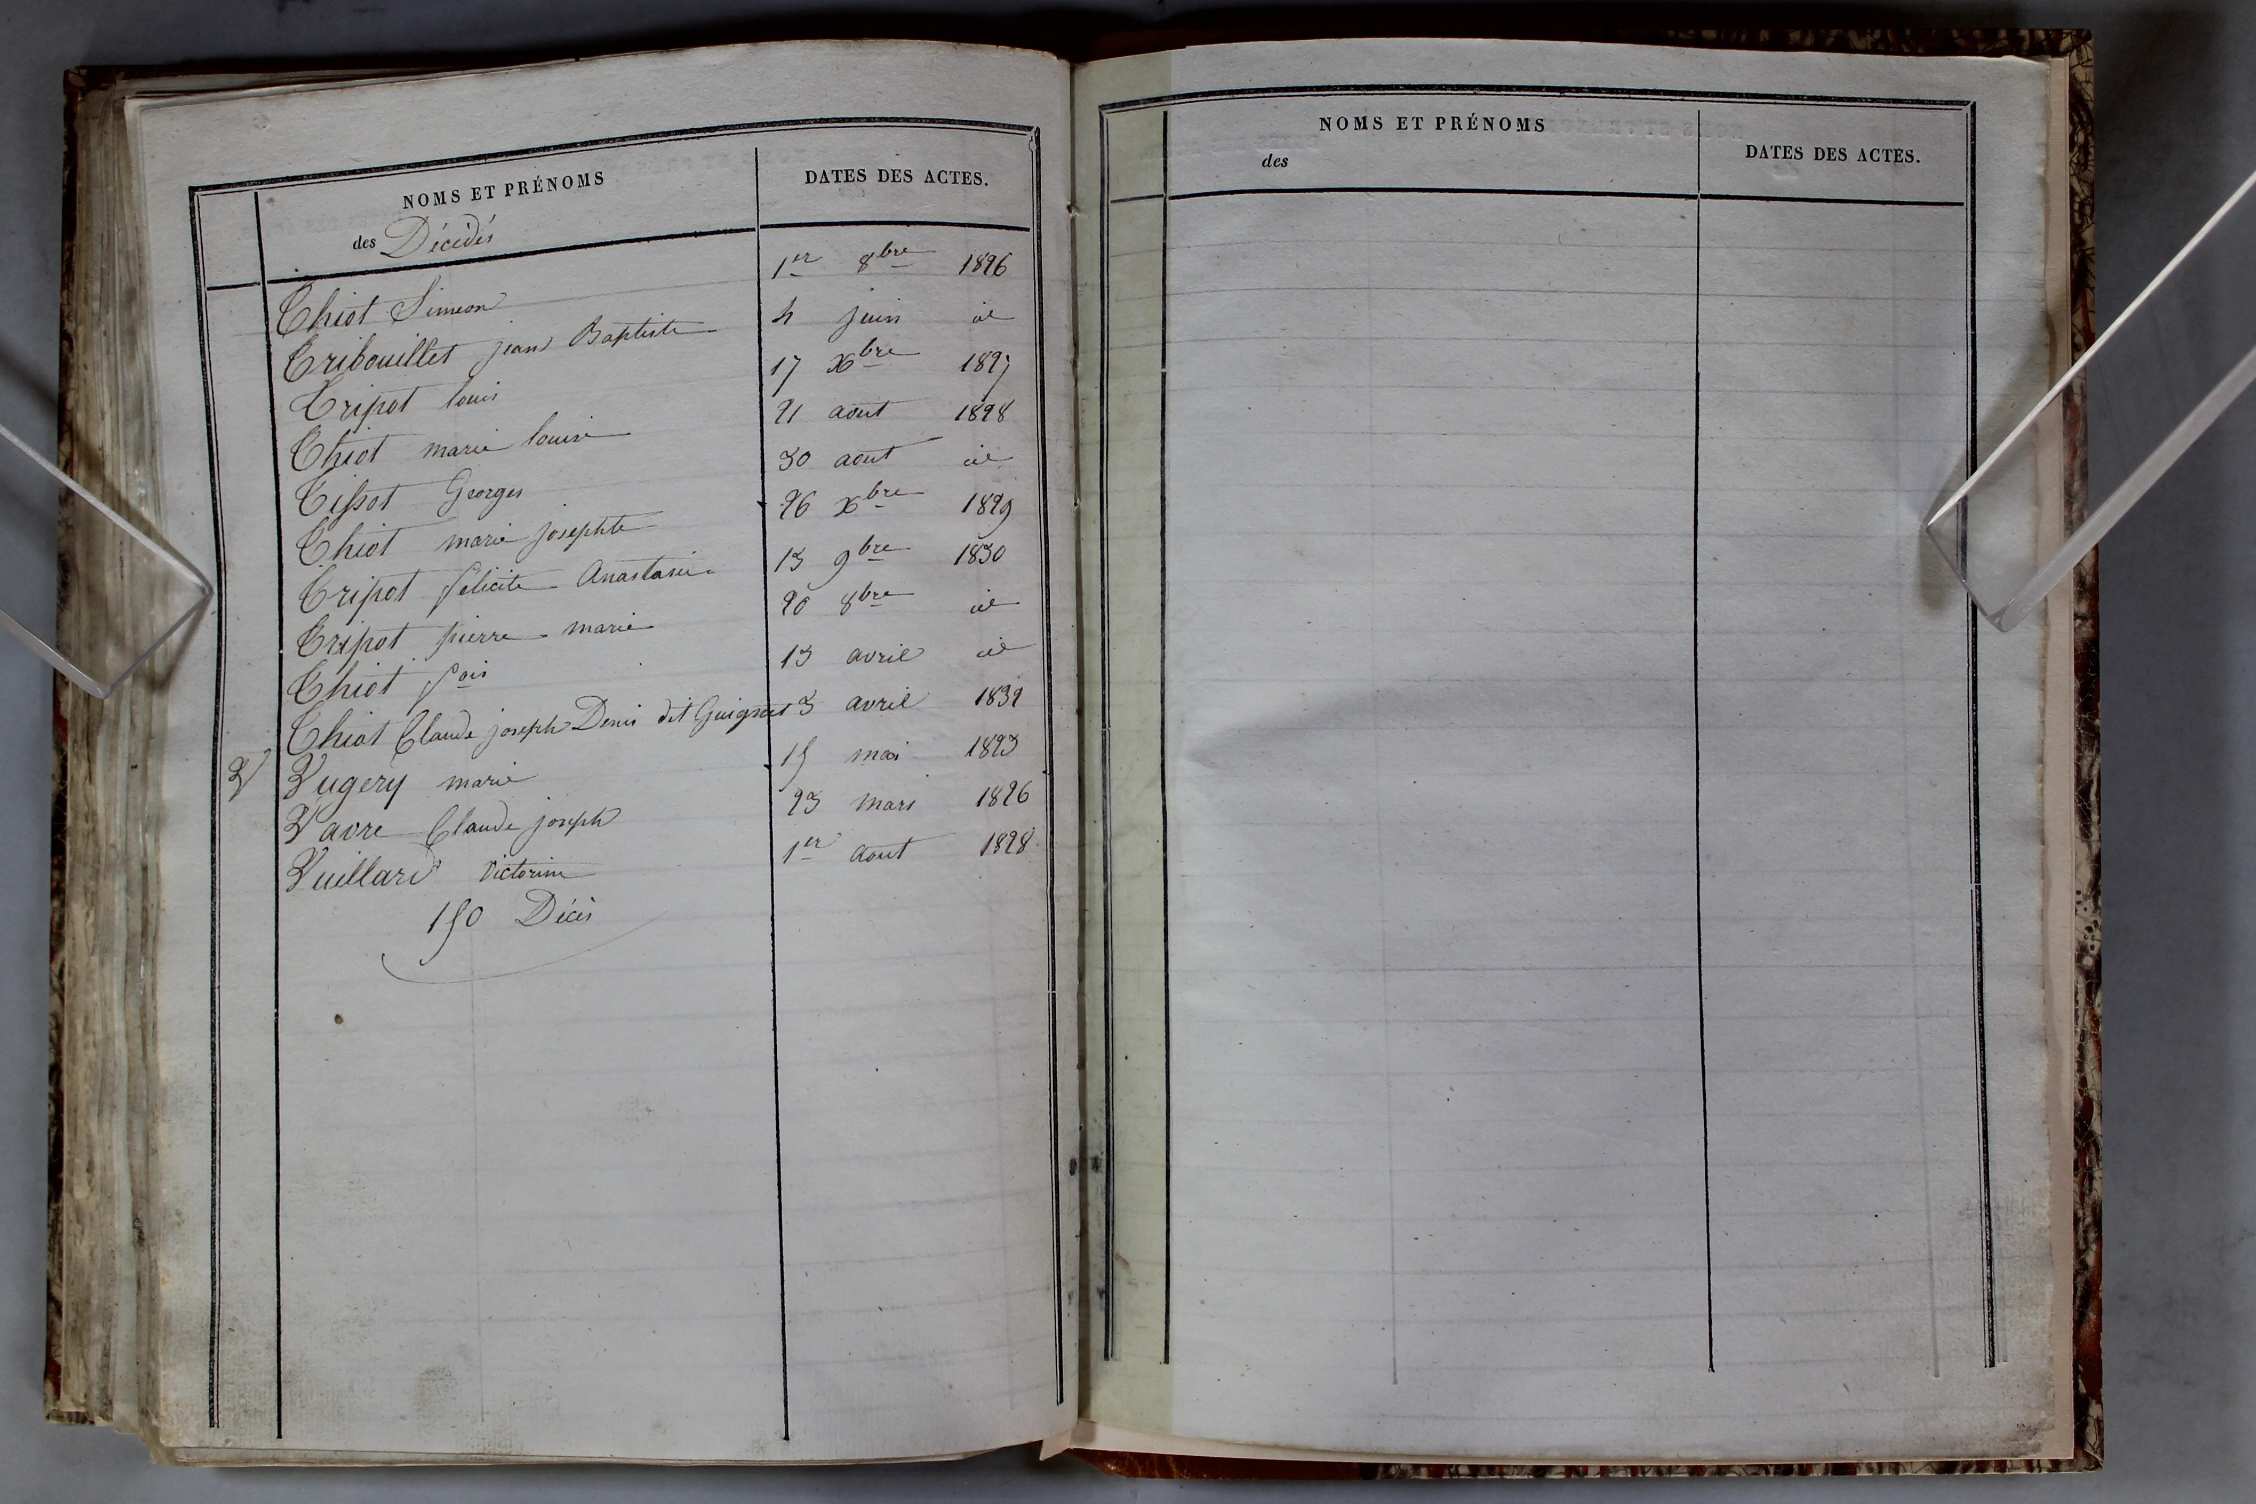 NOMS ET PRÉNOMS
DATES DES ACTES.
des Décédés
Thiot Simeon 1er 8bre 1826
Tribouillet jean Baptiste 4 juin id
Tripot louis 17 Xbre 1827
Thiot marie louise 21 aout 1828
Tissot Georges 30 aout id
Thiot marie josephte 26 Xbre 1829
Tripot félicité Anastasie 13 9bre 1830
Tripot pierre marie 20 8bre id
Thiot fois 13 avril id
Thiot Claude joseph Denis dit Guignet 3 avril 1832
V Vugery marie 15 mai 1823
Vavre Claude joseph 23 mars 1826
Vuillard victorine 1er aout 1828
150 Décès
NOMS ET PRÉNOMS
des
DATES DES ACTES.